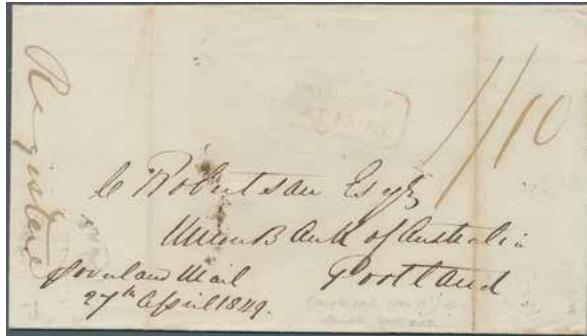 Registered
1/10
AT FAIRY
C Robertson Esqr
Union Bank of Australia
Portland
Overland Mail
27th April 1849.